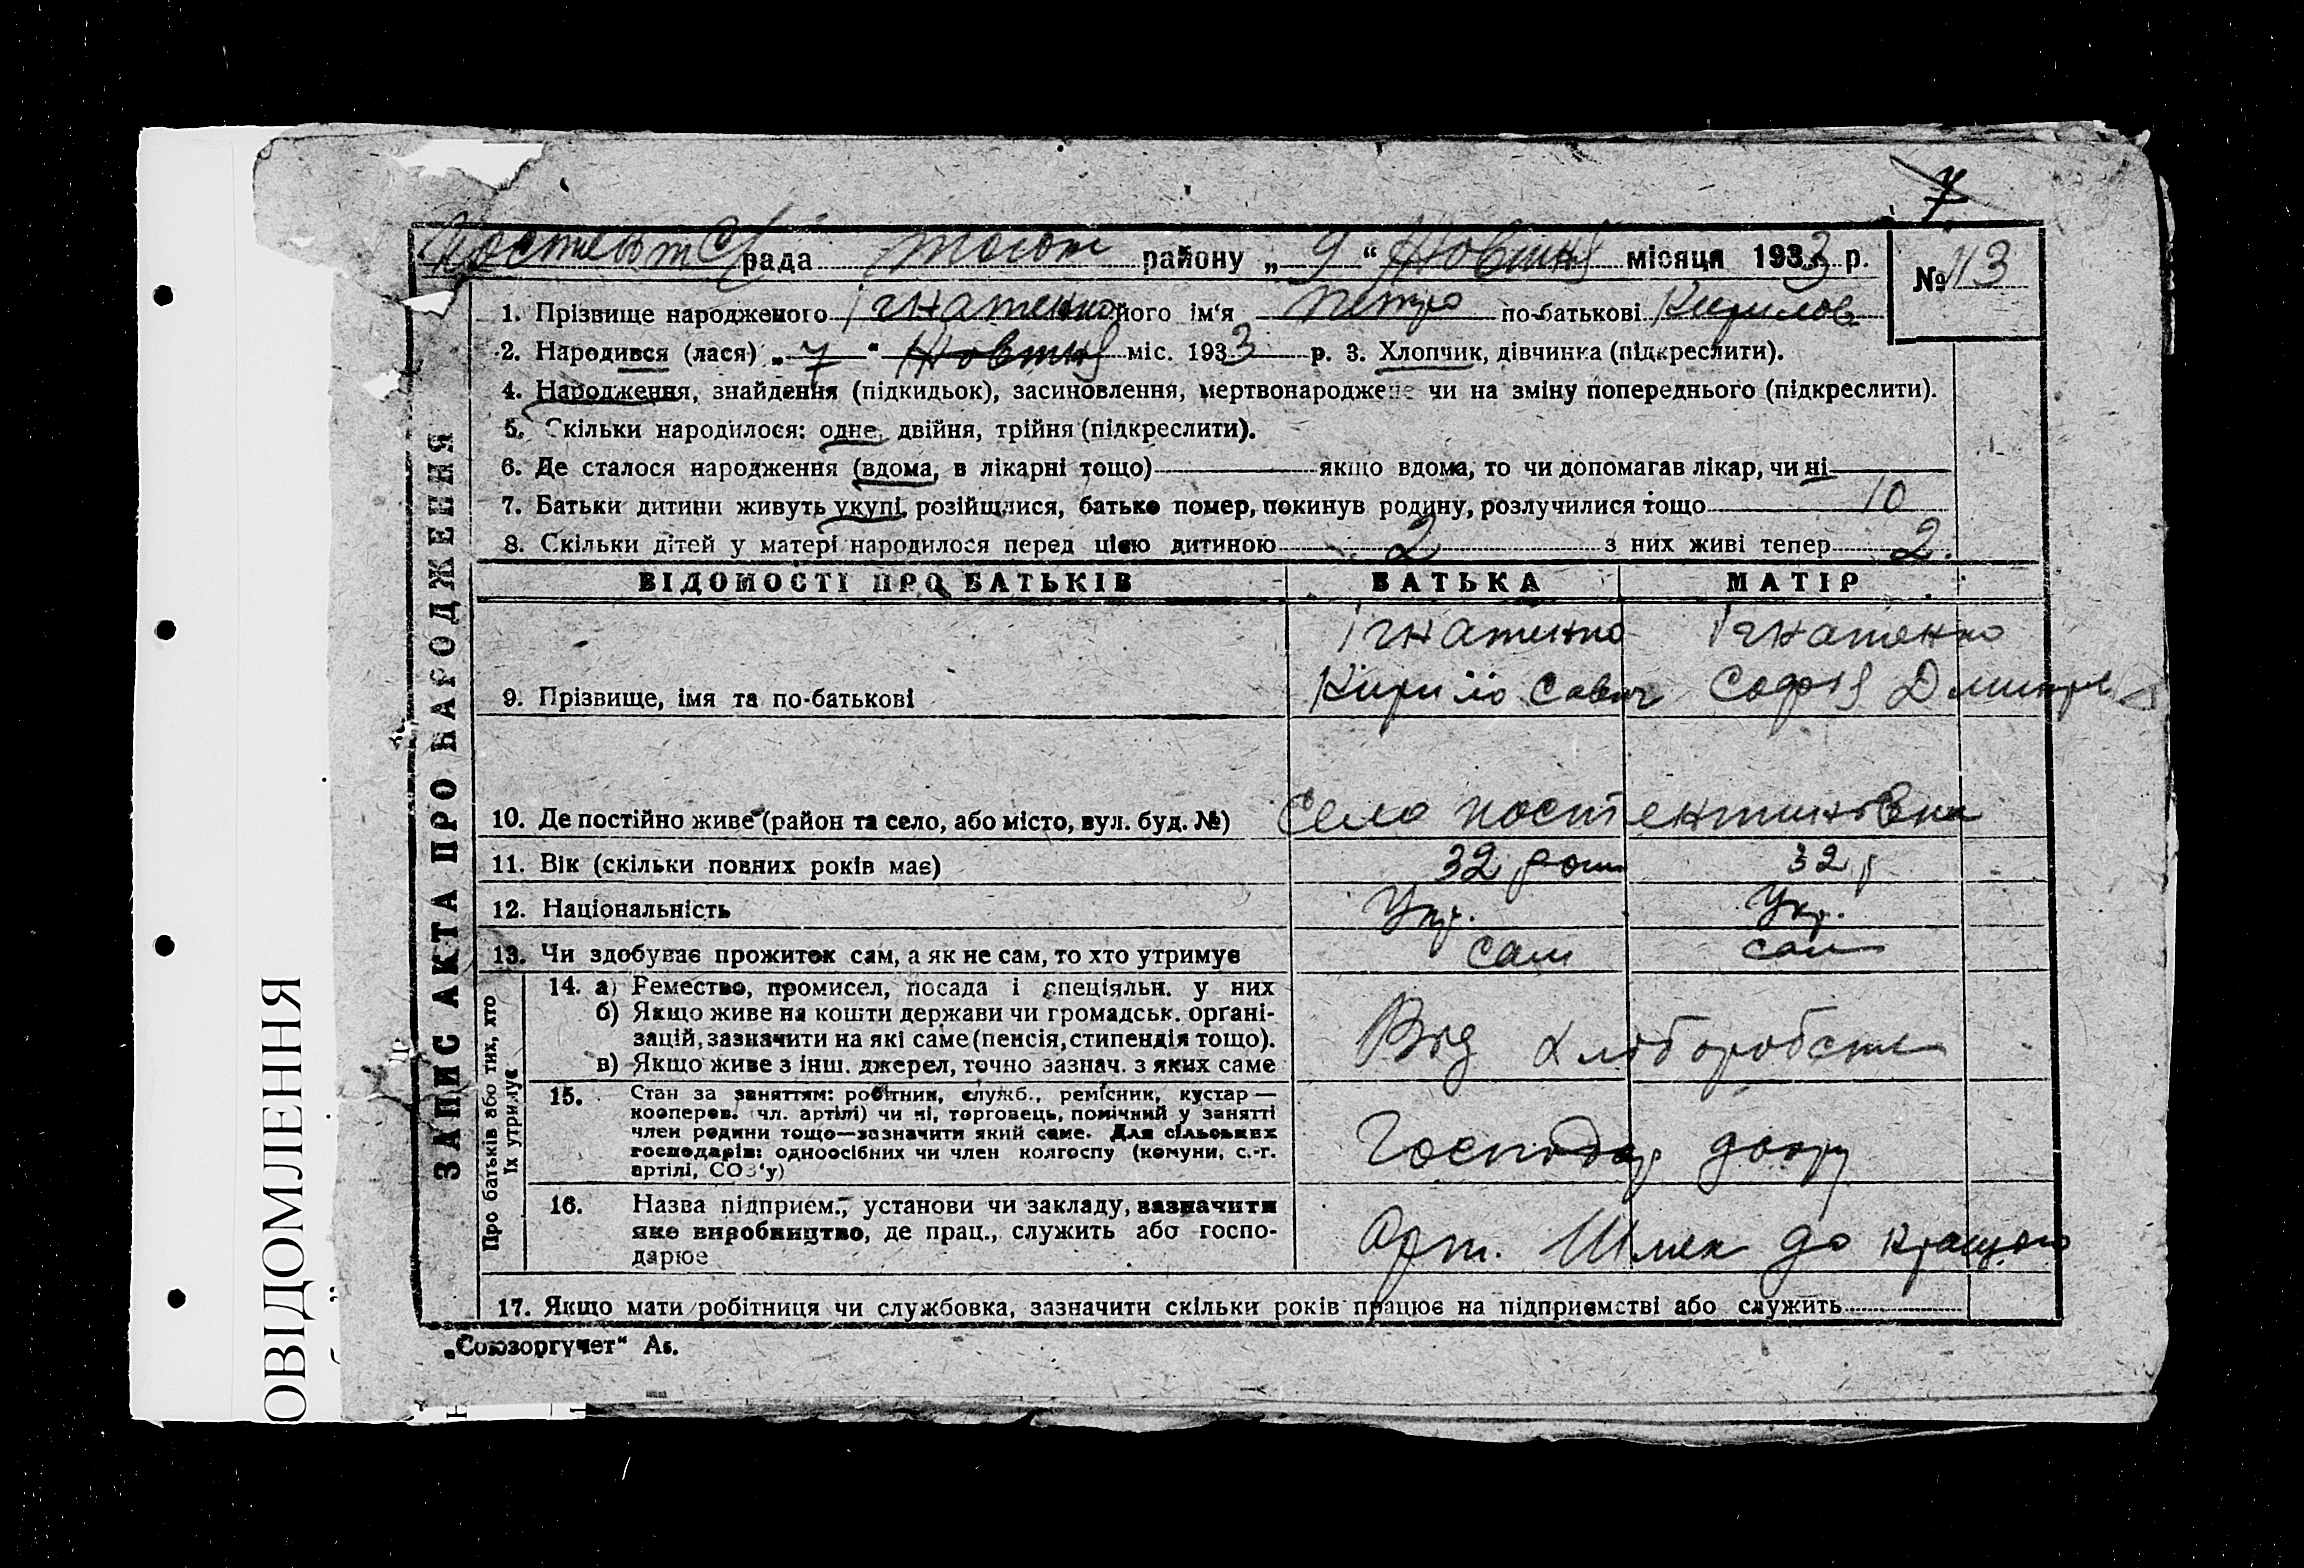 7
Костянт С/рада Токмак району „ 9 “ Жовтня місяця 1933 р. № 113
1. Прізвище народженого Ігнатенко його ім'я Петро по-батькові Кирилов
2. Народився (лася) „ 7 “ Жовтня міс. 1933 р. 3. Хлопчик, дівчинка (підкреслити).
4. Народження, знайдення (підкидьок), засиновлення, мертвонароджене чи на зміну попереднього (підкреслити).
5. Скільки народилося: одне, двійня, трійня (підкреслити).
6. Де сталося народження (вдома, в лікарні тощо) якщо вдома, то чи допомагав лікар, чи ні
7. Батьки дитини живуть укупі, розійшлися, батько помер, покинув родину, розлучилися тощо 10
8. Скільки дітей у матері народилося перед цією дитиною 2 з них живі тепер 2.
ЗАПИС АКТА ПРО НАРОДЖЕННЯ
ВІДОМОСТІ ПРО БАТЬКІВ БАТЬКА МАТІР
Ігнатенко Ігнатенко
9. Прізвище, імя та по-батькові Кирило Савич Софія Дмитрів
10. Де постійно живе (район та село, або місто, вул. буд. №) Село Костянтинівка
11. Вік (скільки повних років має) 32 роки 32 р
12. Національність Укр. Укр.
13. Чи здобуває прожиток сам, а як не сам, то хто утримує сам сам
Про батьків або тих, хто
їх утримує
14. а) Ремество, промисел, посада і спеціяльн. у них
б) Якщо живе на кошти держави чи громадськ. органі-
зацій, зазначити на які саме (пенсія, стипендія тощо).
в) Якщо живе з інш. джерел, точно зазнач. з яких саме
Від хліборобства
15. Стан за заняттям: робітник, служб., ремісник, кустар —
кооперов. (чл. артілі) чи ні, торговець, помічний у занятті
член родини тощо—зазначити який саме. Для сільських
господарів: одноосібних чи член колгоспу (комуни, с.-г.
артілі, СОЗ'у)
Господар двору
16. Назва підприєм., установи чи закладу, зазначити
яке виробництво, де прац., служить або госпо-
дарює
Арт. Шлях до кращого
17. Якщо мати робітниця чи службовка, зазначити скільки років працює на підприємстві або служить
„Союзоргучет“
ОВІДОМЛЕННЯ